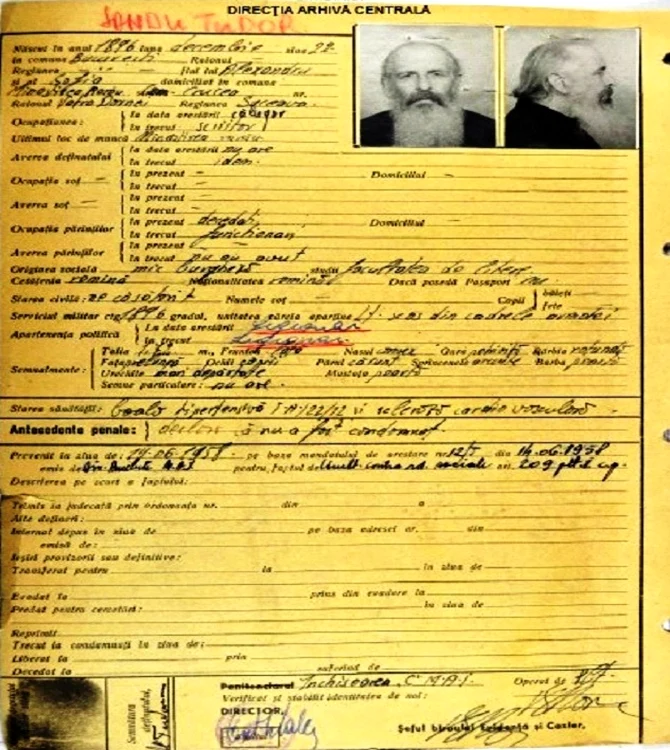 DIRECȚIA ARHIVĂ CENTRALĂ
SANDU TUDOR
Născut în anul 1896 luna decembrie ziua 22
în comuna București Raionul —
Regiunea — fiul lui Alexandru
și al Sofia domiciliat în comuna
Crucea nr.
Raionul Vatra Dornei Regiunea Suceava
Ocupațiunea: La data arestării călugăr
în trecut scriitor
Ultimul loc de muncă
Averea deținutului La data arestării nu are
în trecut idem.
Ocupația soț — în prezent — Domiciliul —
în trecut —
Averea soț — în prezent —
în trecut —
Ocupația părinților în prezent decedați Domiciliul —
în trecut funcționari
Averea părinților în prezent —
în trecut nu au avut
Originea socială mic burgheză studii facultatea de litere
Cetățenia romînă Naționalitatea romînă Dacă posedă Pașaport nu
Starea civilă: necăsătorit Numele soț — Copii băieți
fete
Serviciul militar ctg. 1896 gradul, unitatea căreia aparține Lt. scos din cadrele armatei
Apartenența politică La data arestării Legionar
în trecut Legionar
Semnalmente: Talia m., Fruntea Nasul Gura potrivită Bărbia rotundă
Fața Ochii Părul cărunt Sprîncenele arcuite Barba poartă
Urechile Mustața poartă
Semne particulare: nu are.
Starea sănătății: Boală hipertensivă și scleroză cardio vasculară
Antecedente penale: declară că nu a fost condamnat.
Prevenit în ziua de: 14-06-1958 pe baza mandatului de arestare nr. din 14-06-1958
emis de pentru faptul de Uneltire contra ord. sociale art. 209 c.p.
Descrierea pe scurt a faptului:
Trimis în judecată prin ordonanța nr. din a
Alte defineri:
Internat depus în ziua de pe baza adresei nr. din
emisă de:
Ieșiri provizorii sau definitive:
Transferat pentru la în ziua de
Evadat la prins din evadare la
Predat pentru cercetări: în ziua de
Reprimit
Trecut la condamnați în ziua de:
Liberat la prin
Decedat la suferind de
Penitenciarul Închisoarea C. M.A.I. Operat de
Verificat și stabilit identitatea de noi:
DIRECTOR,
Șeful biroului Evidență și Cazier.
Semnătura deținutului,